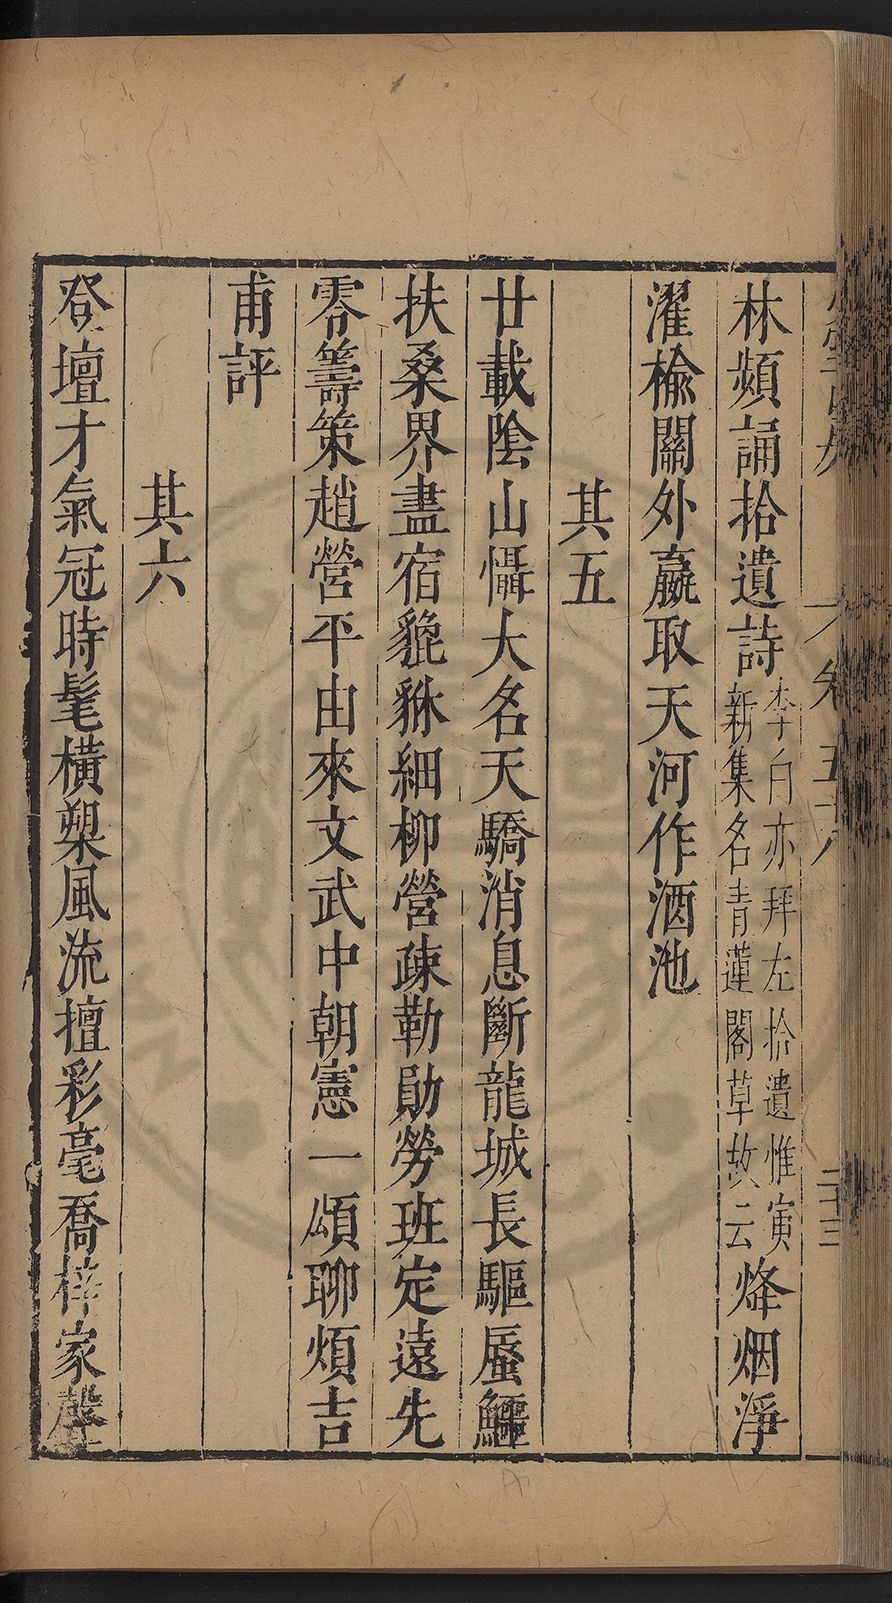 林頻誦拾遺詩李白亦拜左拾遺惟寅新集名青蓮閣草故云烽烟淨
濯楡關外嬴取天河作酒池
其五
廿載陰山懾大名天驕消息斷龍城長驅蜃鱷
扶桑界盡宿貔貅細柳營疎勒勛勞班定遠先
零籌策趙營平由來文武中朝憲一頌聊煩吉
甫評
其六
登壇才氣冠時髦橫槊風流擅彩毫喬梓家聲
卷五十八
二十三